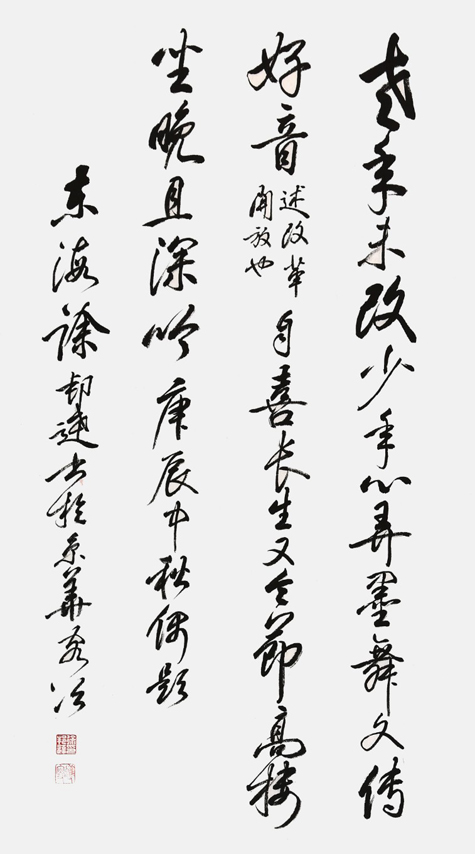 老年未改少年心弄墨舞文传
好音述改革開放也自喜长生又令節高楼
坐晚且深吟庚辰中秋偶题
东海徐书於京華客次